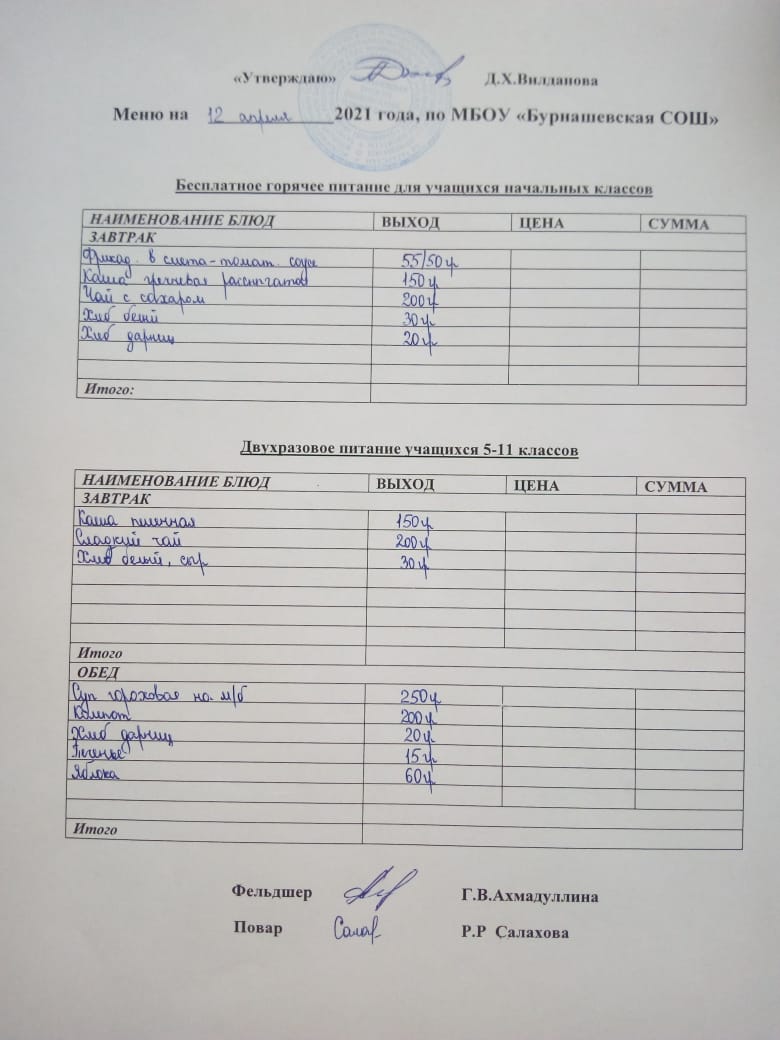 «Утверждаю» Д.Х.Вилданова
Меню на 12 апреля 2021 года, по МБОУ «Бурнашевская СОШ»
Бесплатное горячее питание для учащихся начальных классов
НАИМЕНОВАНИЕ БЛЮД ВЫХОД ЦЕНА СУММА
ЗАВТРАК
Фрикад. в смета-томат. соусе 55/50гр
Каша гречневая рассыпчатая 150гр
Чай с сахаром 200гр
Хлеб белый 30гр
Хлеб дарниц 20гр
Итого:
Двухразовое питание учащихся 5-11 классов
НАИМЕНОВАНИЕ БЛЮД ВЫХОД ЦЕНА СУММА
ЗАВТРАК
Каша пшенная 150гр
Сладкий чай 200гр
Хлеб белый, сыр 30гр
Итого
ОБЕД
Суп гороховая на м/б 250гр
Компот 200гр
Хлеб дарниц 20гр
Печенье 15гр
Яблока 60гр
Итого
Фельдшер Г.В.Ахмадуллина
Повар Салах Р.Р Салахова